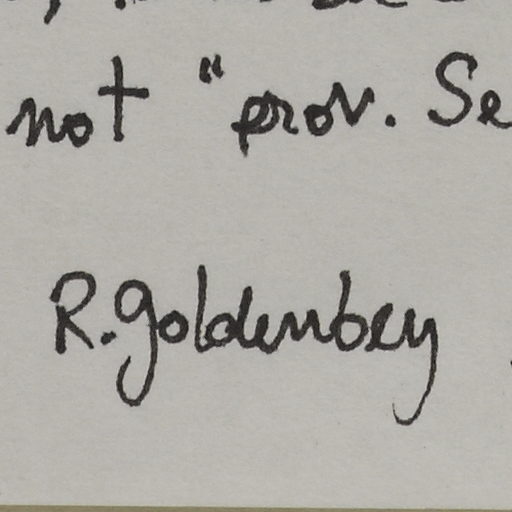 not "prov. Se
R. Goldenberg